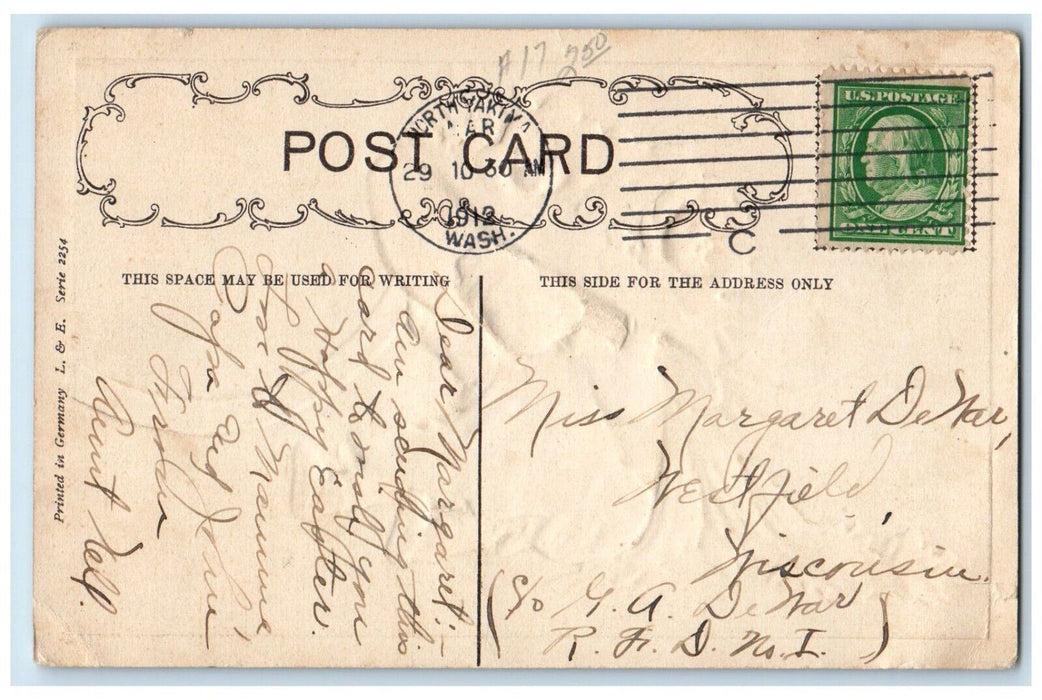 A17 250
POST CARD
NORTH YAKIMA
MAR
29 10 30 AM
1913
WASH.
C
U.S. POSTAGE
ONE CENT
THIS SPACE MAY BE USED FOR WRITING
THIS SIDE FOR THE ADDRESS ONLY
Printed in Germany L. & E. Serie 2254
Dear Margaret:-
Am sending this
card to wish you
a Happy Easter.
Love to Mamma,
Papa and John
From
Aunt Nell.
Miss Margaret DeWar,
Westfield
Wisconsin.
(c/o G. A. DeWar
R. F. D. No. I. )